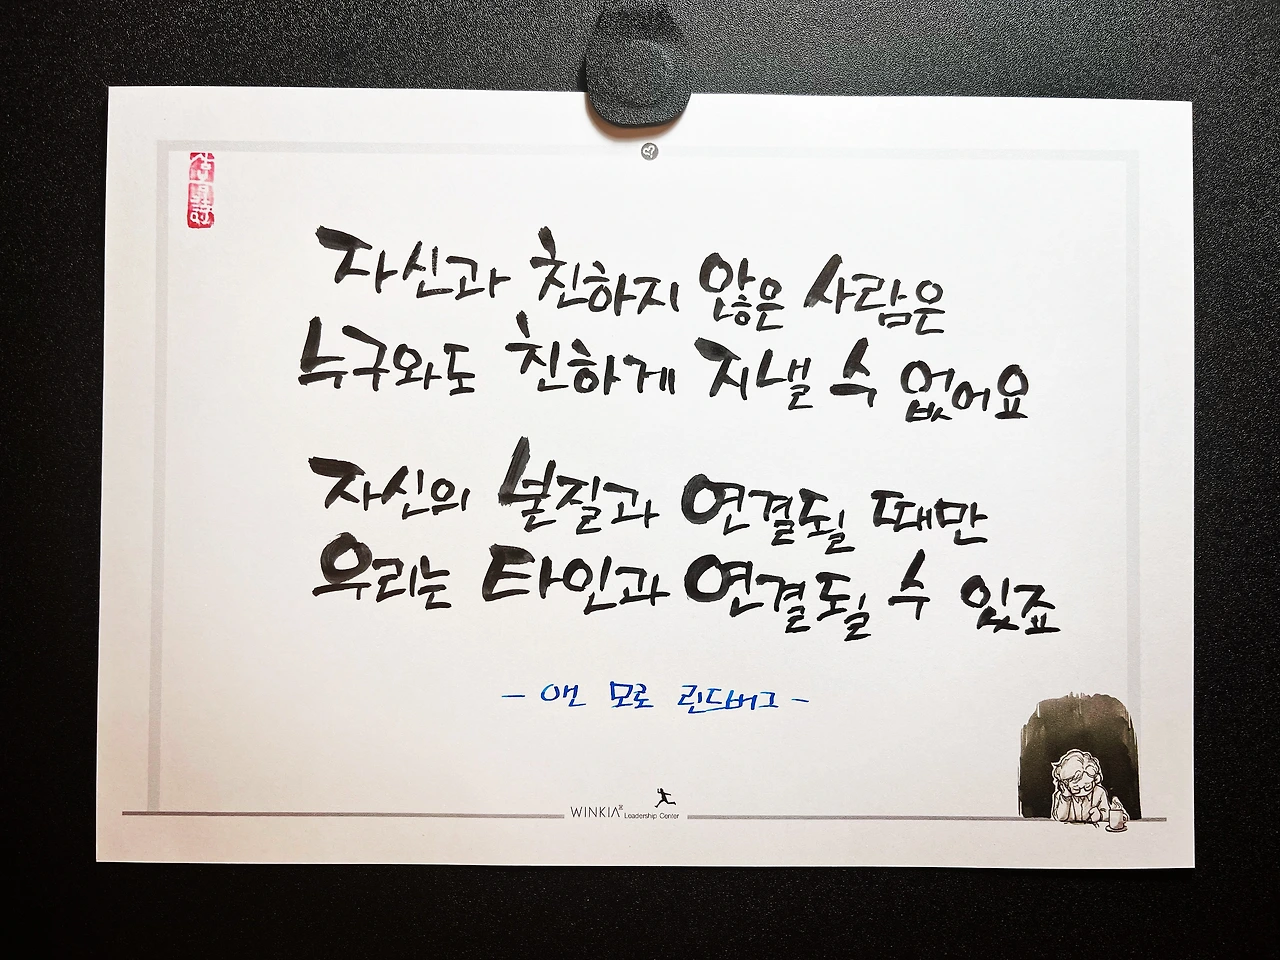 자신과 친하지 않은 사람은
누구와도 친하게 지낼 수 없어요
자신의 본질과 연결될 때만
우리는 타인과 연결될 수 있죠
- 앤 모로 린드버그 -
WINKIA
Leadership Center